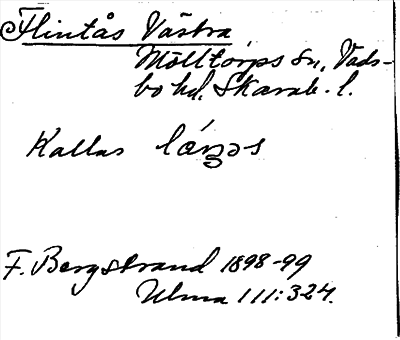 Flintås Västra
Mölltorps sn. Vads-
bo hd. Skarab. l.
Kallas
F. Bergstrand 1898-99
Ulma 111:324.